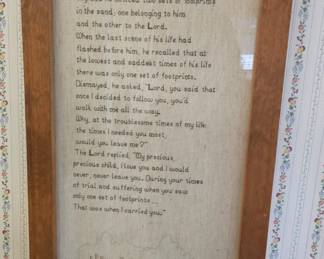 he noticed two sets of footprints
in the sand; one belonging to him
and the other to the Lord.
When the last scene of his life had
flashed before him, he recalled that at
the lowest and saddest times of his life
there was only one set of footprints.
Dismayed, he asked, "Lord, you said that
once I decided to follow you, you'd
walk with me all the way.
Why, at the troublesome times of my life
the times I needed you most,
would you leave me?"
The Lord replied, "My precious,
precious child, I love you and I would
never, never leave you. During your times
of trial and suffering when you saw
only one set of footprints...
That was when I carried you."